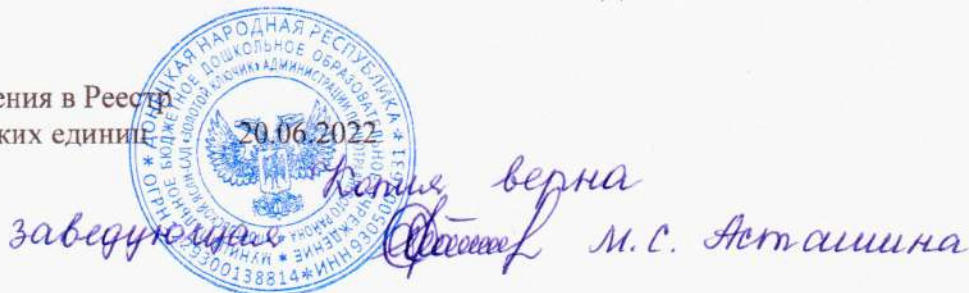 ения в Реестр
ких единиц 20.06.2022
Копия верна
заведующая М.С. Асташина
ДОНЕЦКАЯ НАРОДНАЯ РЕСПУБЛИКА
БЮДЖЕТНОЕ ДОШКОЛЬНОЕ ОБРАЗОВАТЕЛЬНОЕ УЧРЕЖДЕНИЕ
ЯСЛИ-САД «ЗОЛОТОЙ КЛЮЧИК» АДМИНИСТРАЦИИ
9300138814*ИНН